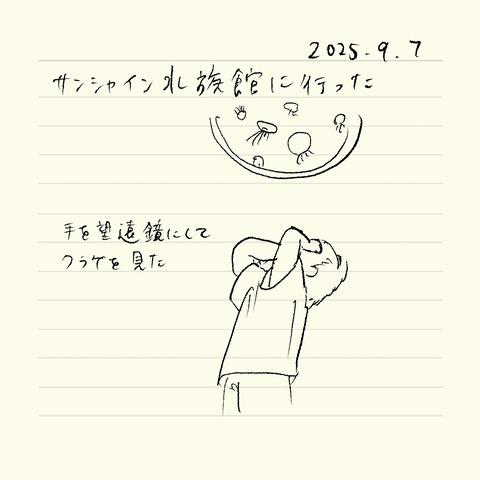 2025.9.7
サンシャイン水族館に行った
手を望遠鏡にして
クラゲを見た